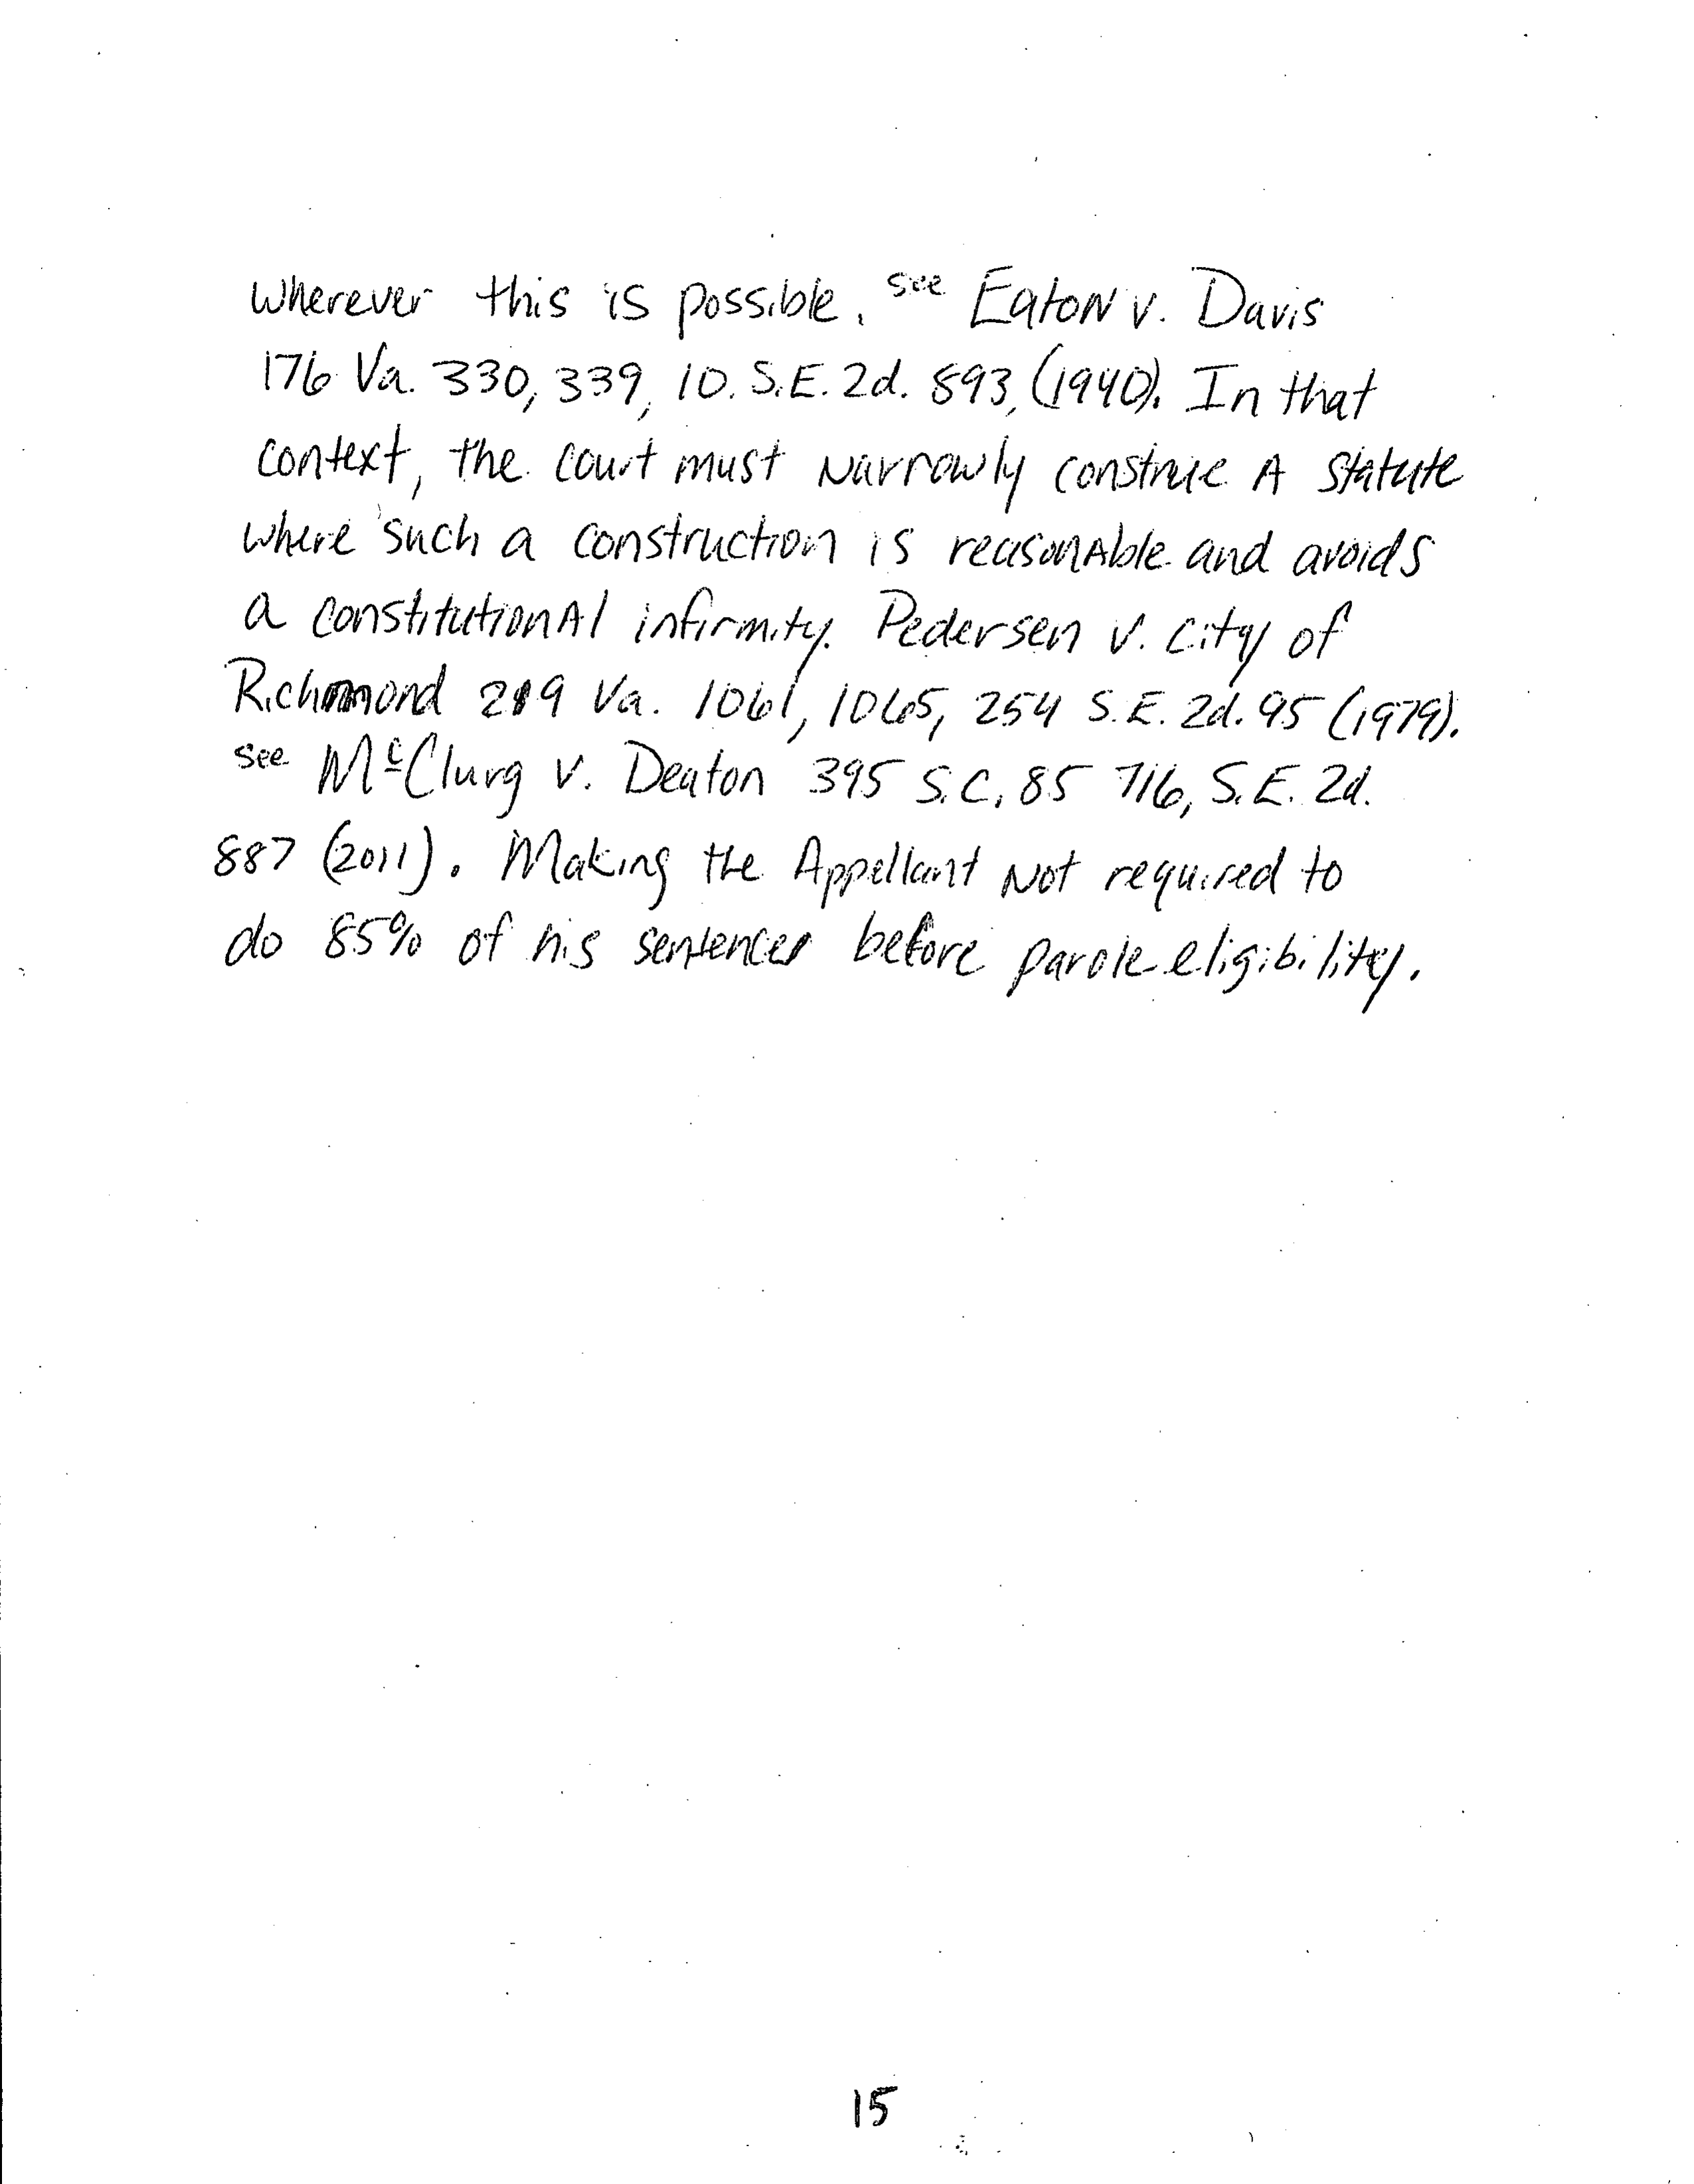 wherever this is possible. see Eaton v. Davis
176 Va. 330, 339, 10. S.E. 2d. 893, (1940). In that
context, the court must Narrowly construe A statute
where such a construction is reasonAble and avoids
a constitutionAl infirmity. Pedersen v. City of
Richmond 219 Va. 1061, 1065, 254 S.E. 2d. 95 (1979).
see McClurg v. Deaton 395 S.C. 85 716, S.E. 2d.
887 (2011). Making the Appellant Not required to
do 85% of his sentences before parole eligibility.
15